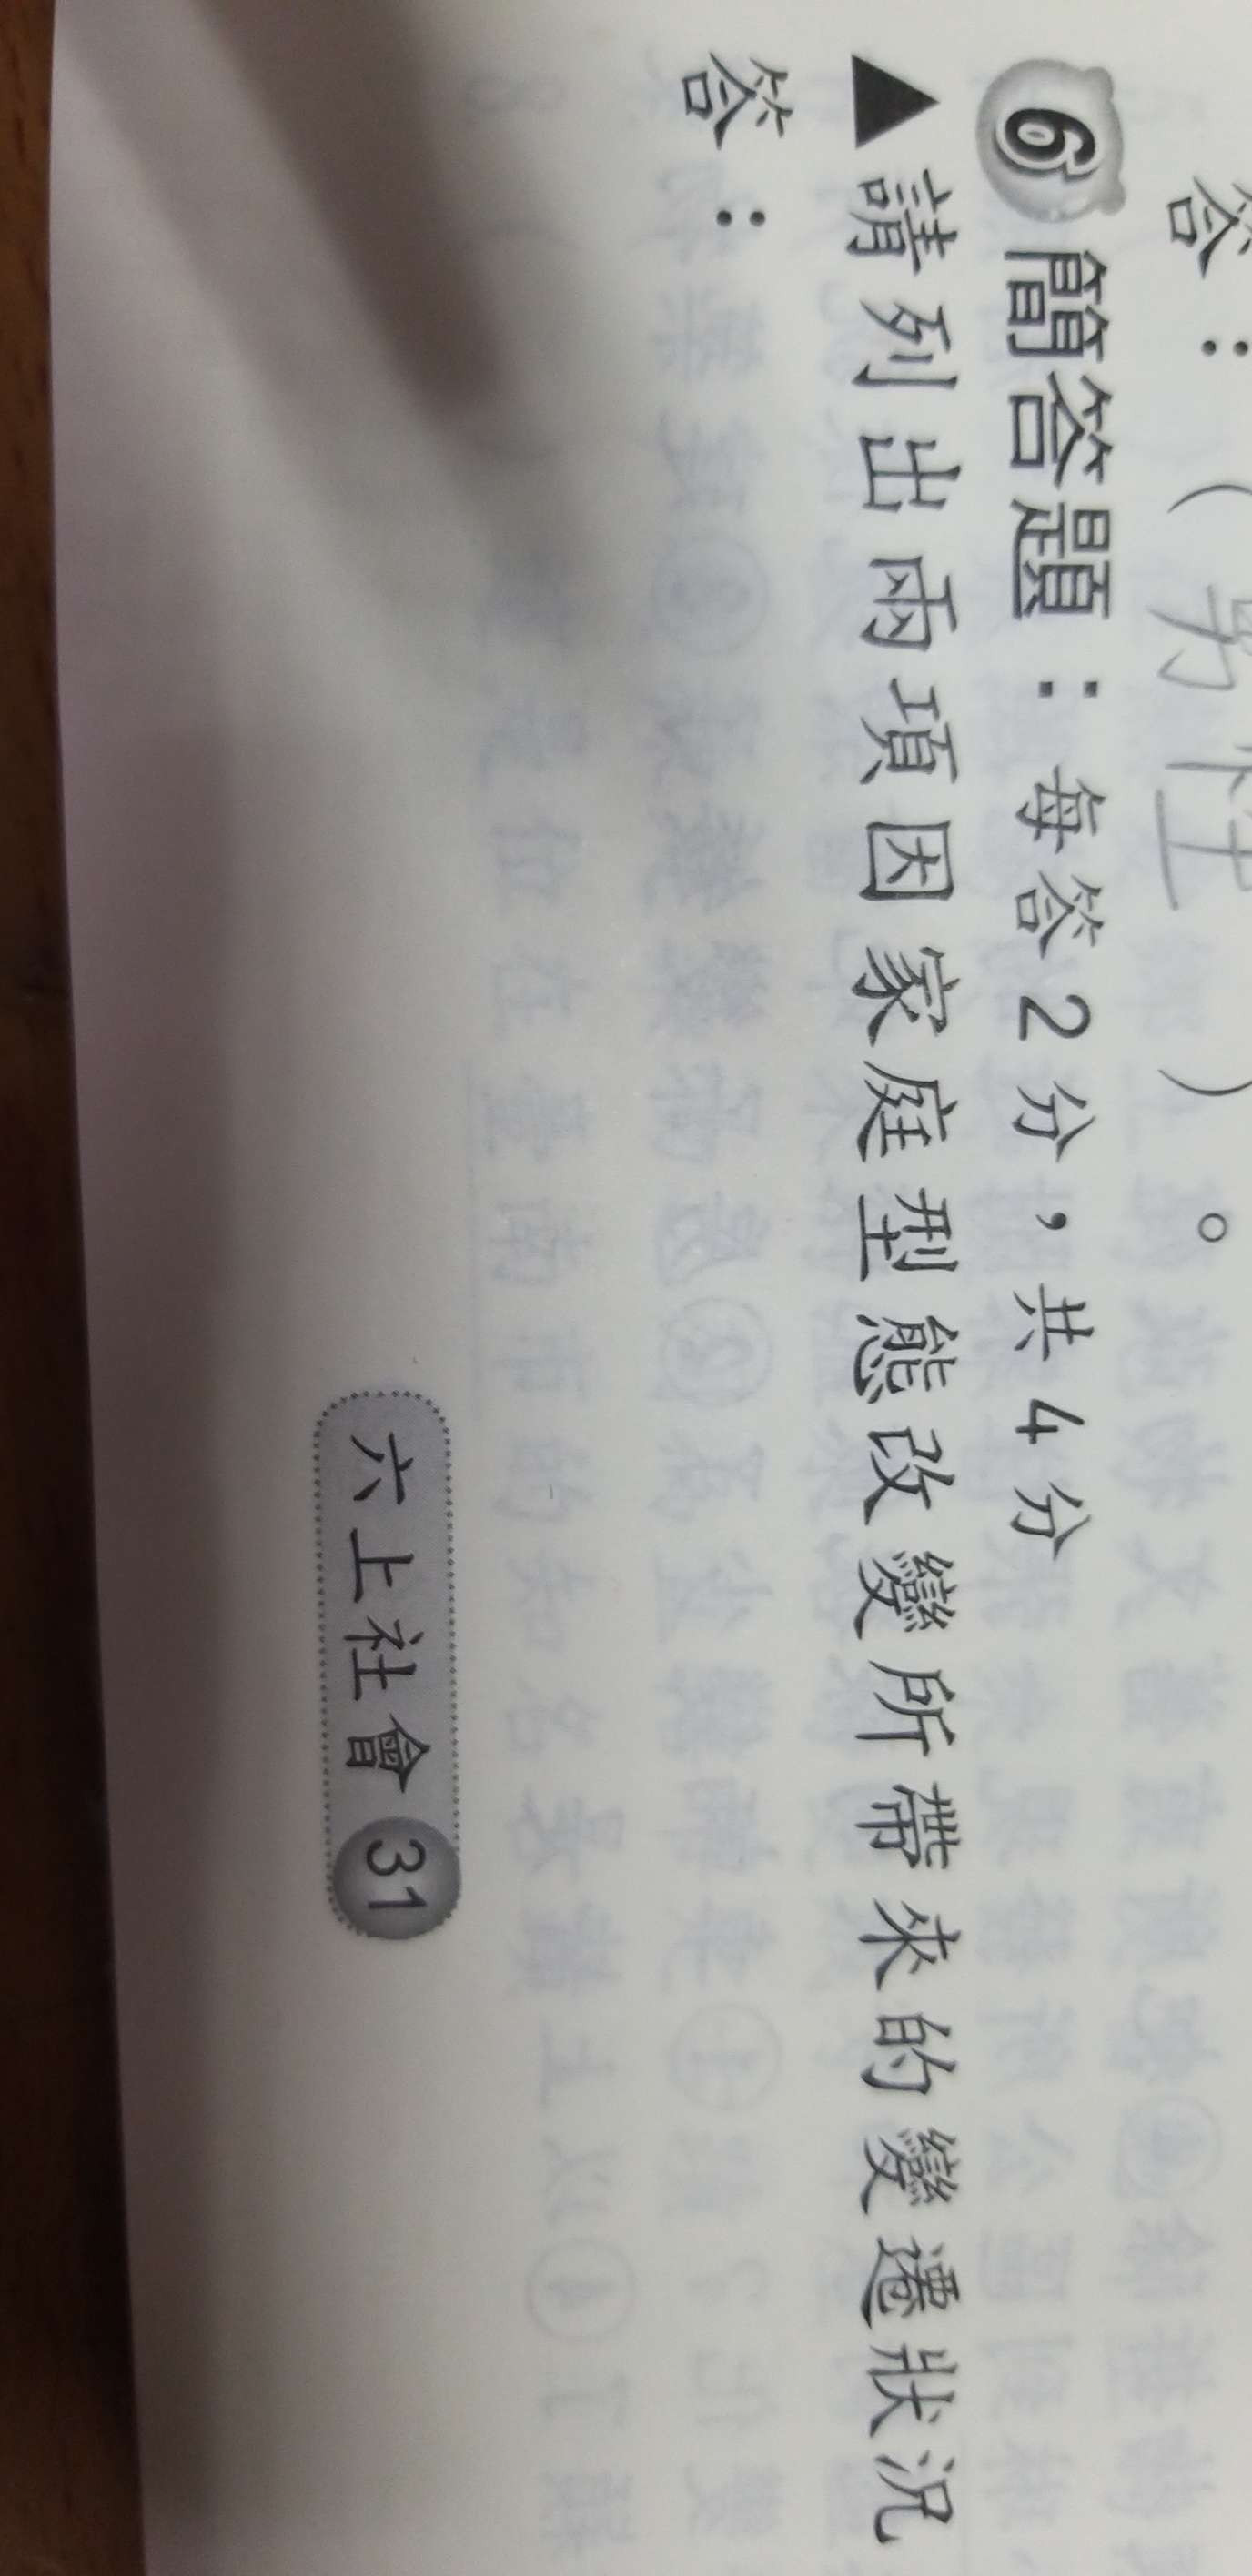 答：（男性）。
6 簡答題：每答2分，共4分
▲請列出兩項因家庭型態改變所帶來的變遷狀況
答：
六上社會 31